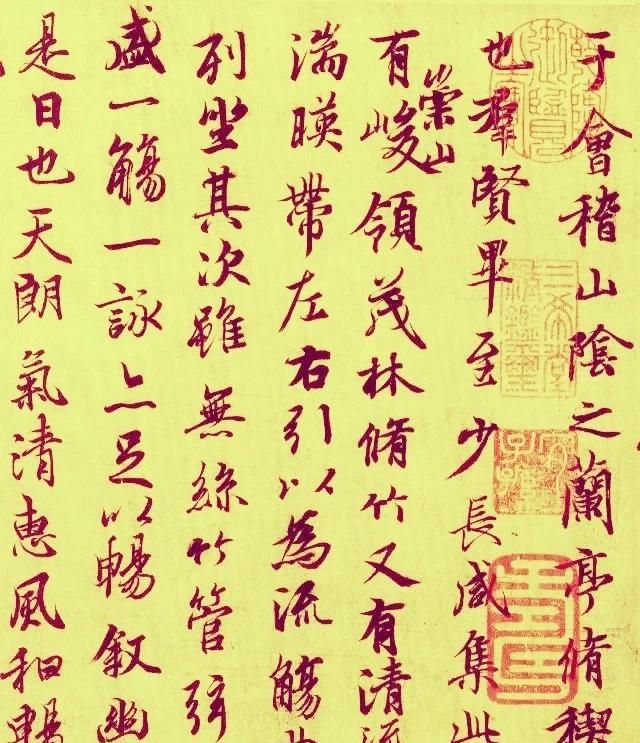 于會稽山陰之蘭亭脩稧
也羣賢畢至少長咸集此
有崇山峻領茂林脩竹又有清流
湍暎帶左右引以為流觴曲
列坐其次雖無絲竹管弦
盛一觴一詠亦足以暢叙幽
是日也天朗氣清惠風和暢